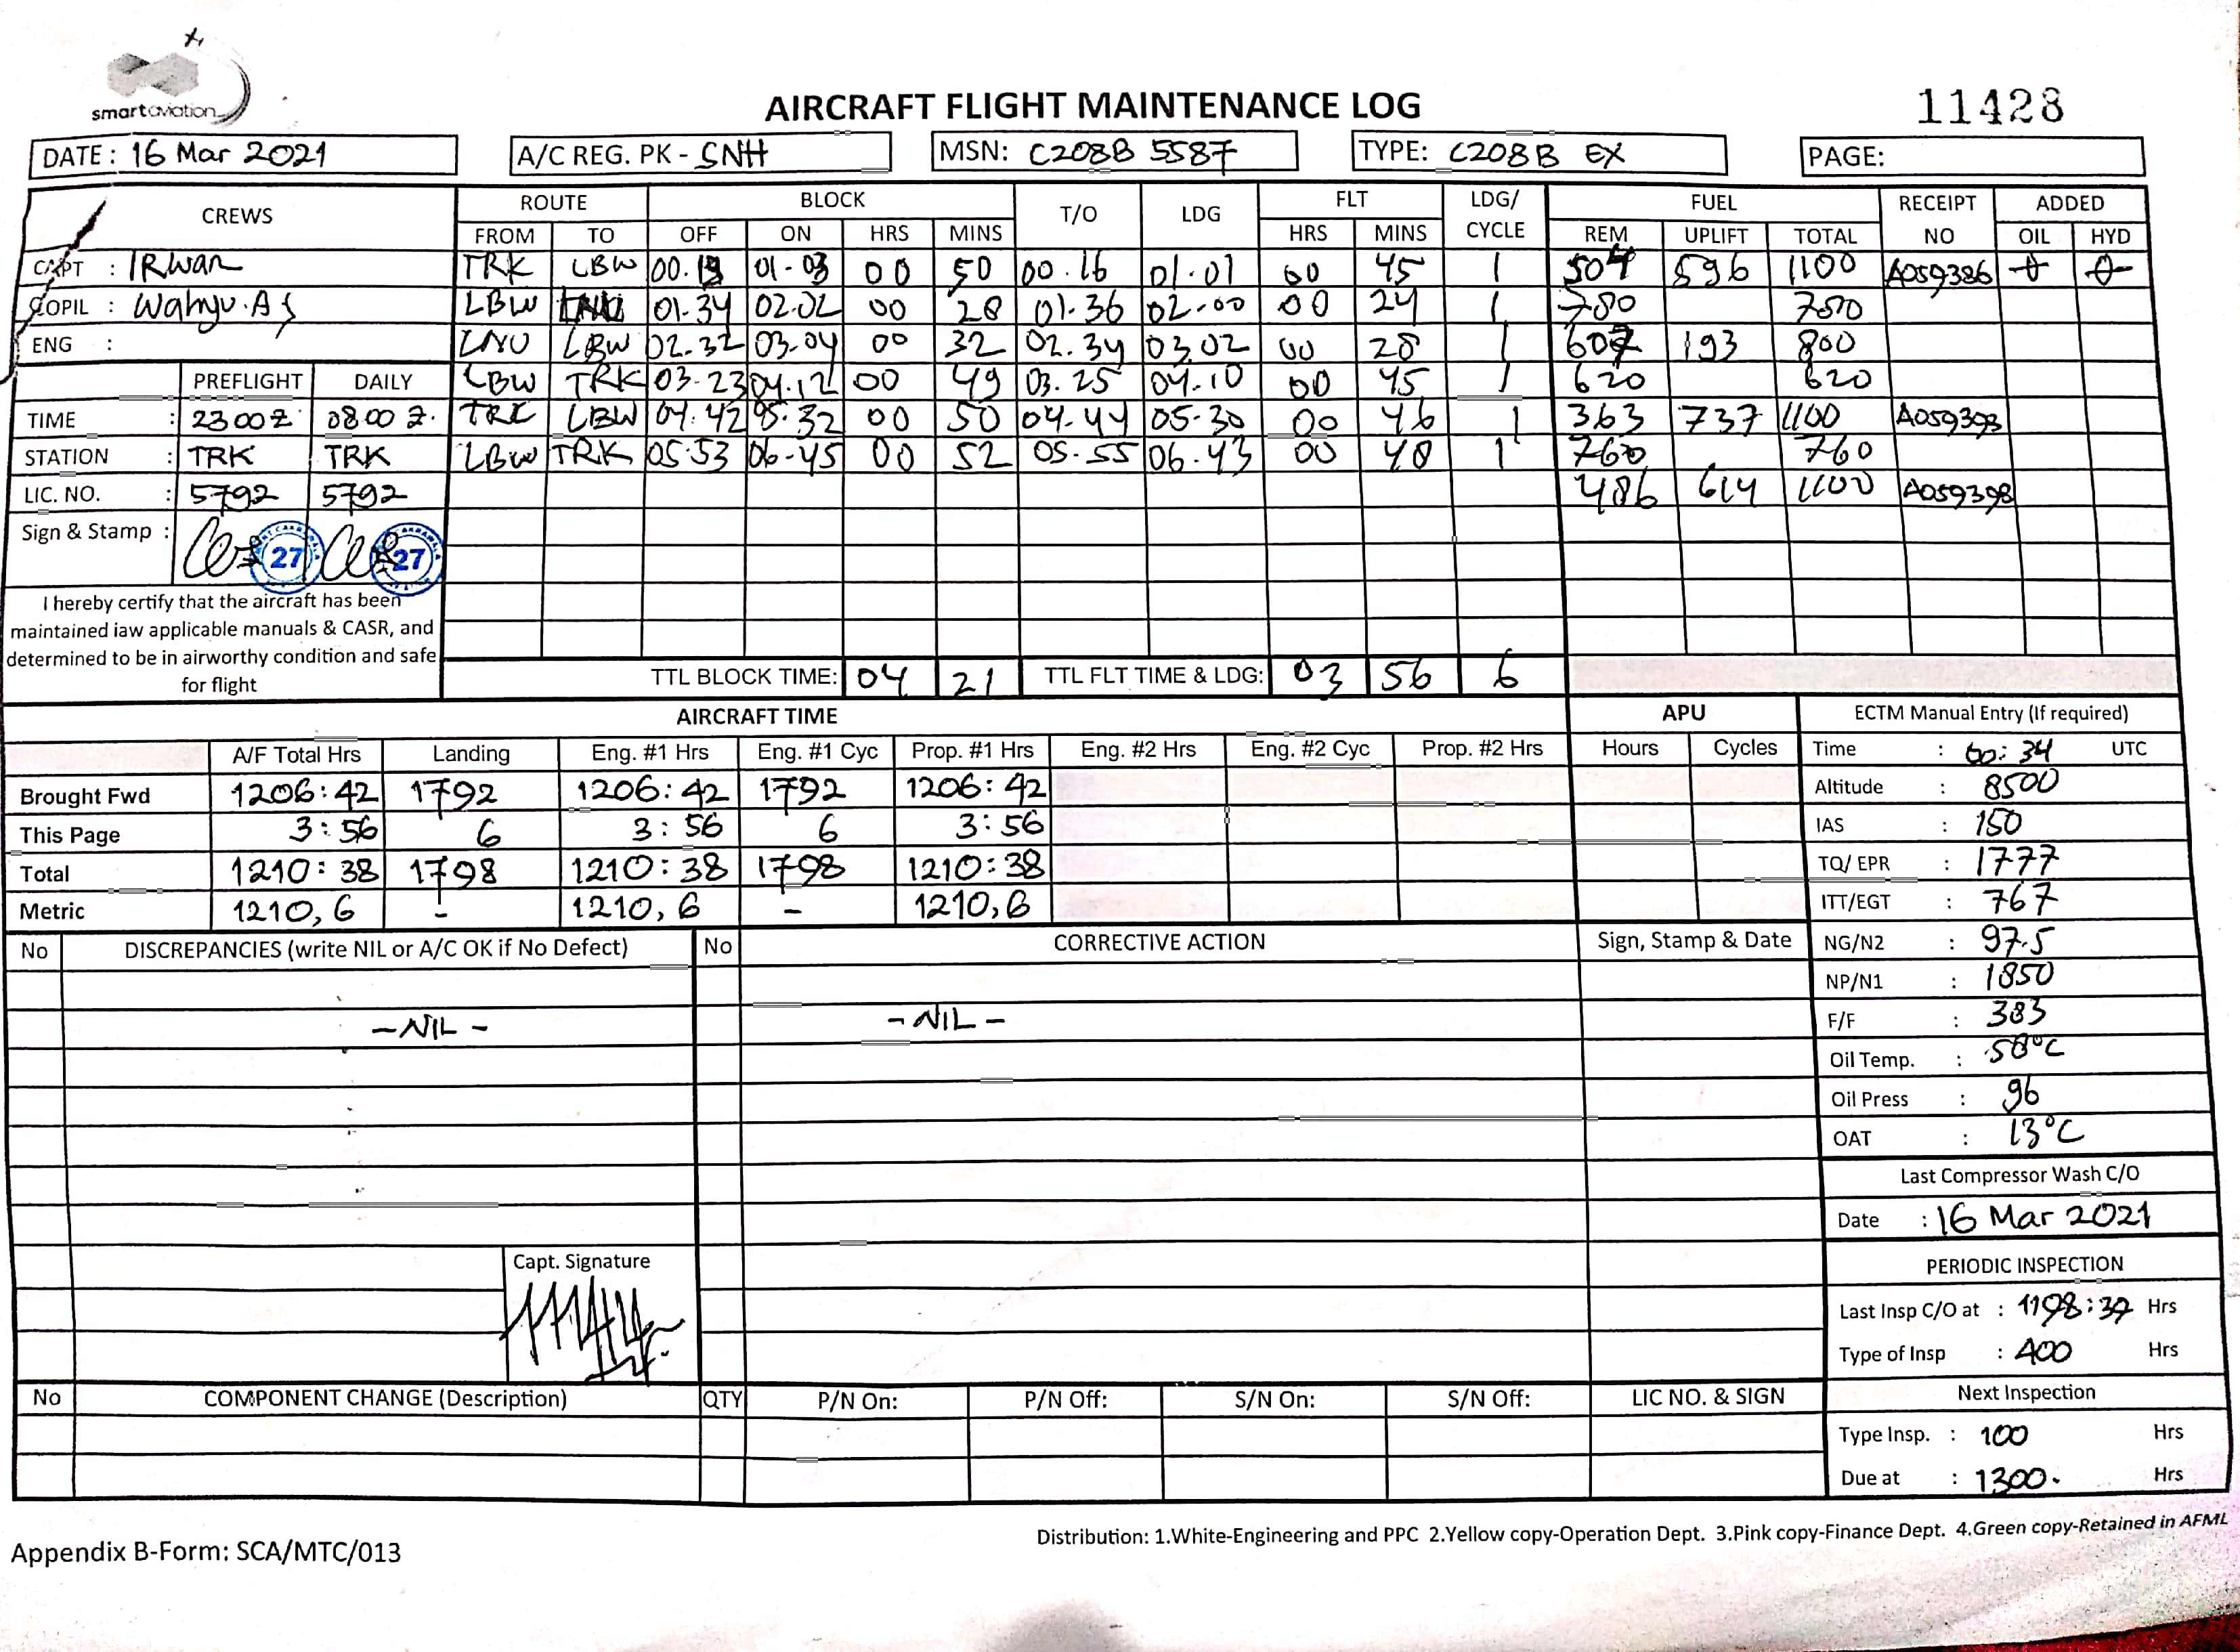 smartaviation
AIRCRAFT FLIGHT MAINTENANCE LOG
11428
DATE: 16 Mar 2021 A/C REG. PK - SNH MSN: C208B 5587 TYPE: C208B EX PAGE:
CREWS ROUTE BLOCK T/O LDG FLT LDG/ CYCLE FUEL RECEIPT NO ADDED
FROM TO OFF ON HRS MINS HRS MINS REM UPLIFT TOTAL OIL HYD
CAPT : IRwan TRK LBW 01-03 00 50 00.16 01.01 00 45 1 504 596 1100 A059386
COPIL : Wahyu.AS LBW 01.34 02.02 00 28 01.36 02.00 00 24 1 780 780
ENG : LNU LBW 02.32 03.04 00 32 02.34 03.02 00 28 1 607 193 800
PREFLIGHT DAILY LBW TRK 03.23 04.12 00 49 03.25 04.10 00 45 1 620 620
TIME : 2300 Z 0800 Z. TRK LBW 04.42 05.32 00 50 04.44 05.30 00 46 1 363 737 1100 A059393
STATION : TRK TRK LBW TRK 05.53 06.45 00 52 05.55 06.43 00 48 1 760 760
LIC. NO. : 5792 5792 486 614 1100 A059398
Sign & Stamp : 27 27
I hereby certify that the aircraft has been
maintained iaw applicable manuals & CASR, and
determined to be in airworthy condition and safe
for flight
TTL BLOCK TIME: 04 21 TTL FLT TIME & LDG: 03 56 6
AIRCRAFT TIME APU ECTM Manual Entry (If required)
A/F Total Hrs Landing Eng. #1 Hrs Eng. #1 Cyc Prop. #1 Hrs Eng. #2 Hrs Eng. #2 Cyc Prop. #2 Hrs Hours Cycles Time : 00:34 UTC
Brought Fwd 1206:42 1792 1206:42 1792 1206:42 Altitude : 8500
This Page 3:56 6 3:56 6 3:56 IAS : 150
Total 1210:38 1798 1210:38 1798 1210:38 TQ/ EPR : 1777
Metric 1210,6 - 1210,6 - 1210,6 ITT/EGT : 767
No DISCREPANCIES (write NIL or A/C OK if No Defect) No CORRECTIVE ACTION Sign, Stamp & Date NG/N2 : 97.5
NP/N1 : 1850
- NIL - - NIL - F/F : 383
Oil Temp. : 58°C
Oil Press : 96
OAT : 13°C
Last Compressor Wash C/O
Date : 16 Mar 2021
Capt. Signature PERIODIC INSPECTION
Last Insp C/O at : 1198:37 Hrs
Type of Insp : 400 Hrs
No COMPONENT CHANGE (Description) QTY P/N On: P/N Off: S/N On: S/N Off: LIC NO. & SIGN Next Inspection
Type Insp. : 100 Hrs
Due at : 1300. Hrs
Distribution: 1.White-Engineering and PPC 2.Yellow copy-Operation Dept. 3.Pink copy-Finance Dept. 4.Green copy-Retained in AFML
Appendix B-Form: SCA/MTC/013